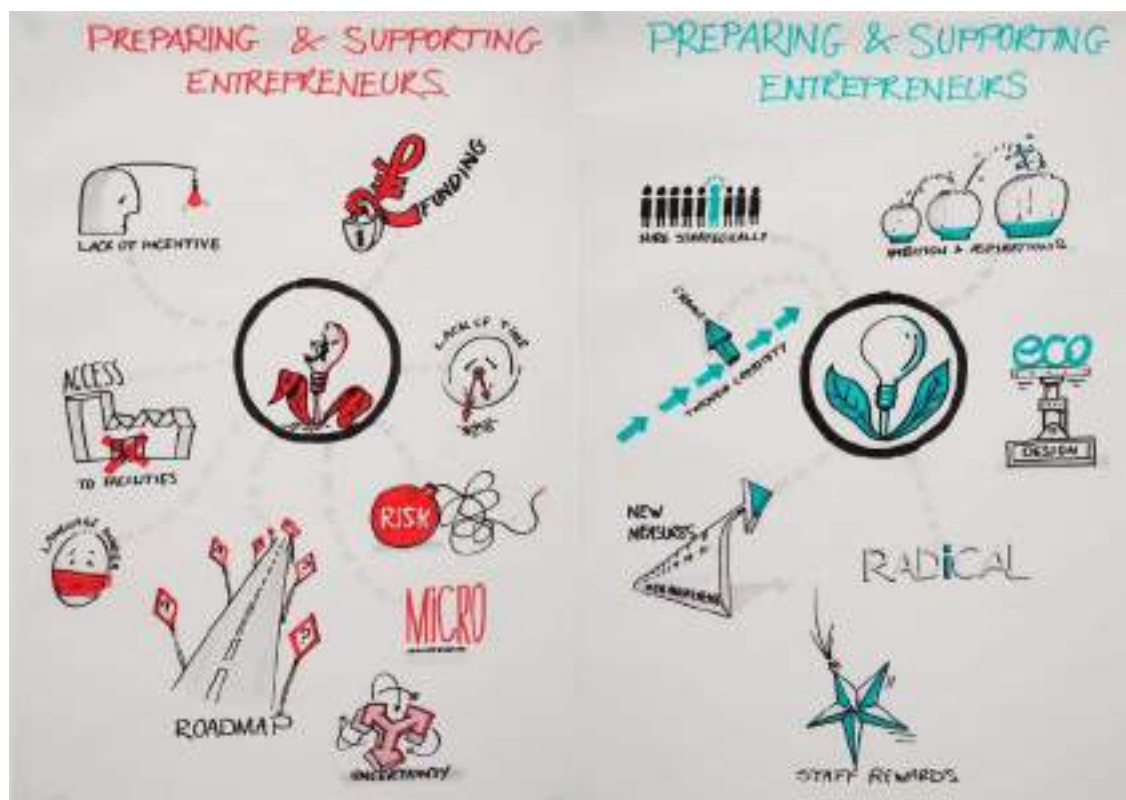 PREPARING & SUPPORTING
ENTREPRENEURS
LACK OF INCENTIVE
FUNDING
LACK OF TIME
ACCESS
TO FACILITIES
RISK
LANGUAGE
?
?
ROADMAP
MICRO
UNCERTAINTY
PREPARING & SUPPORTING
ENTREPRENEURS
HIRE STRATEGICALLY
AMBITION & ASPIRATIONS
THROUGH
eco
DESIGN
NEW
MEASURES
RADiCAL
STAFF REWARDS